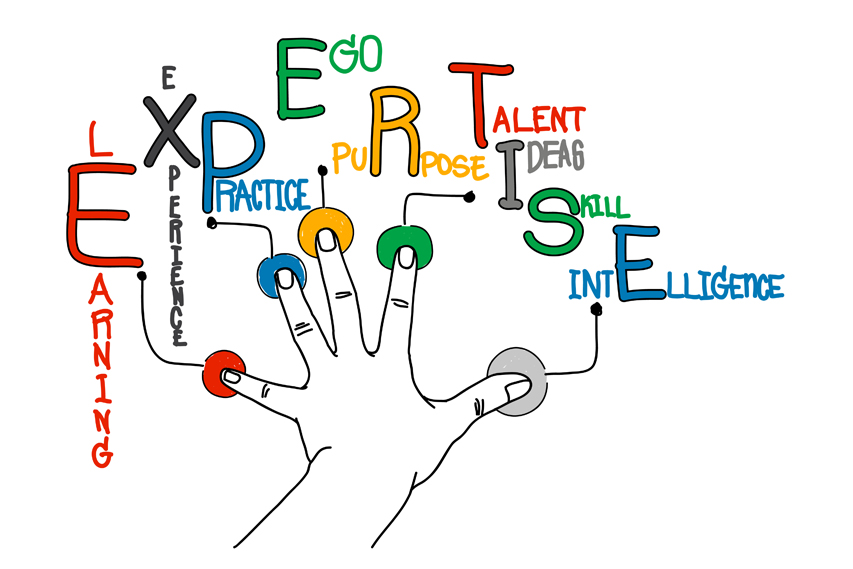 LEARNING
EXPERIENCE
PRACTICE
EGO
PURPOSE
TALENT
IDEAS
SKILL
INTELLIGENCE